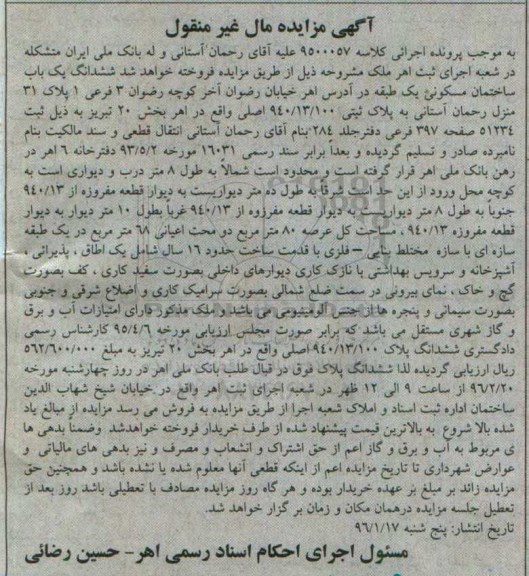 آگهی مزایده مال غیر منقول
به موجب پرونده اجرائی کلاسه ۹۵۰۰۰۵۷ علیه آقای رحمان آستانی و له بانک ملی ایران متشکله
در شعبه اجرای ثبت اهر ملک مشروحه ذیل از طریق مزایده فروخته خواهد شد ششدانگ یک باب
ساختمان مسکونی یک طبقه در آدرس اهر خیابان رضوان آخر کوچه رضوان ۳ فرعی ۱ پلاک ۳۱
منزل رحمان آستانی به پلاک ثبتی ۹۴۰/۱۳/۱۰۰ اصلی واقع در اهر بخش ۲۰ تبریز به ذیل ثبت
۵۱۲۳۴ صفحه ۳۹۷ فرعی دفترجلد ۲۸۴ بنام آقای رحمان آستانی انتقال قطعی و سند مالکیت بنام
نامبرده صادر و تسلیم گردیده و بعداً برابر سند رسمی ۱۶۰۳۱ مورخه ۹۳/۵/۲ دفترخانه ۶ اهر در
رهن بانک ملی اهر قرار گرفته است و محدود است شمالاً به طول ۸ متر درب و دیواری است به
کوچه محل ورود از این حد است شرقاً به طول ده متر دیواریست به دیوار قطعه مفروزه از ۹۴۰/۱۳
جنوباً به طول ۸ متر دیواریست به دیوار قطعه مفرزوه از ۹۴۰/۱۳ غرباً بطول ۱۰ متر دیوار به دیوار
قطعه مفروزه ۹۴۰/۱۳ ، مساحت کل عرصه ۸۰ متر مربع دو محت اعیانی ۶۸ متر مربع در یک طبقه
سازه ای با سازه مختلط بنایی – فلزی با قدمت ساخت حدود ۱۶ سال شامل یک اطاق ، پذیرائی ،
آشپزخانه و سرویس بهداشتی با نازک کاری دیوارهای داخلی بصورت سفید کاری ، کف بصورت
گچ و خاک ، نمای بیرونی در سمت ضلع شمالی بصورت سرامیک کاری و اضلاع شرقی و جنوبی
بصورت سیمانی و پنجره ها از جنس آلومینیومی می باشد و ملک مذکور دارای امتیازات آب و برق
و گاز شهری مستقل می باشد که برابر صورت مجلس ارزیابی مورخه ۹۵/۴/۶ کارشناس رسمی
دادگستری ششدانگ پلاک ۹۴۰/۱۳/۱۰۰ اصلی واقع در اهر بخش ۲۰ تبریز به مبلغ ۵۶۲/۶۰۰/۰۰۰
ریال ارزیابی گردیده لذا ششدانگ پلاک فوق در قبال طلب بانک ملی اهر در روز چهارشنبه مورخه
۹۶/۲/۲۰ از ساعت ۹ الی ۱۲ ظهر در شعبه اجرای ثبت اهر واقع در خیابان شیخ شهاب الدین
ساختمان اداره ثبت اسناد و املاک شعبه اجرا از طریق مزایده به فروش می رسد مزایده از مبالغ یاد
شده بالا شروع به بالاترین قیمت پیشنهاد شده از طرف خریدار فروخته خواهدشد وضمنا بدهی ها
ی مربوط به آب و برق و گاز اعم از حق اشتراک و انشعاب و مصرف و نیز بدهی های مالیاتی و
عوارض شهرداری تا تاریخ مزایده اعم از اینکه قطعی آنها معلوم شده یا نشده باشد و همچنین حق
مزایده زائد بر مبلغ بر عهده خریدار بوده و هر گاه روز مزایده مصادف با تعطیلی باشد روز بعد از
تعطیل جلسه مزایده درهمان مکان و زمان بر گزار خواهد شد.
تاریخ انتشار: پنج شنبه ۹۶/۱/۱۷
مسئول اجرای احکام اسناد رسمی اهر- حسین رضائی